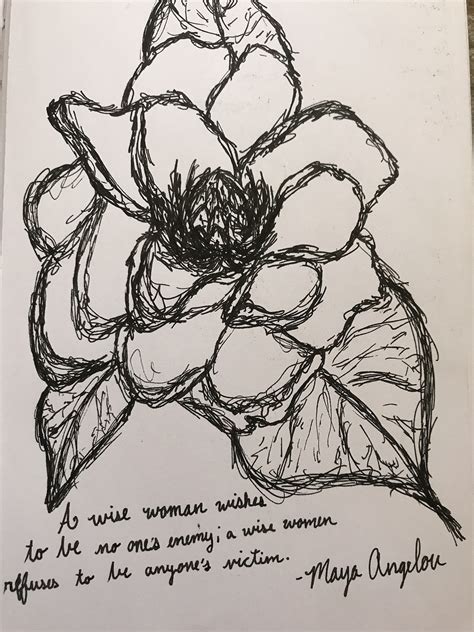 A wise woman wishes
to be no one's enemy; a wise women
reffuses to be anyone's victim.
-Maya Angelou